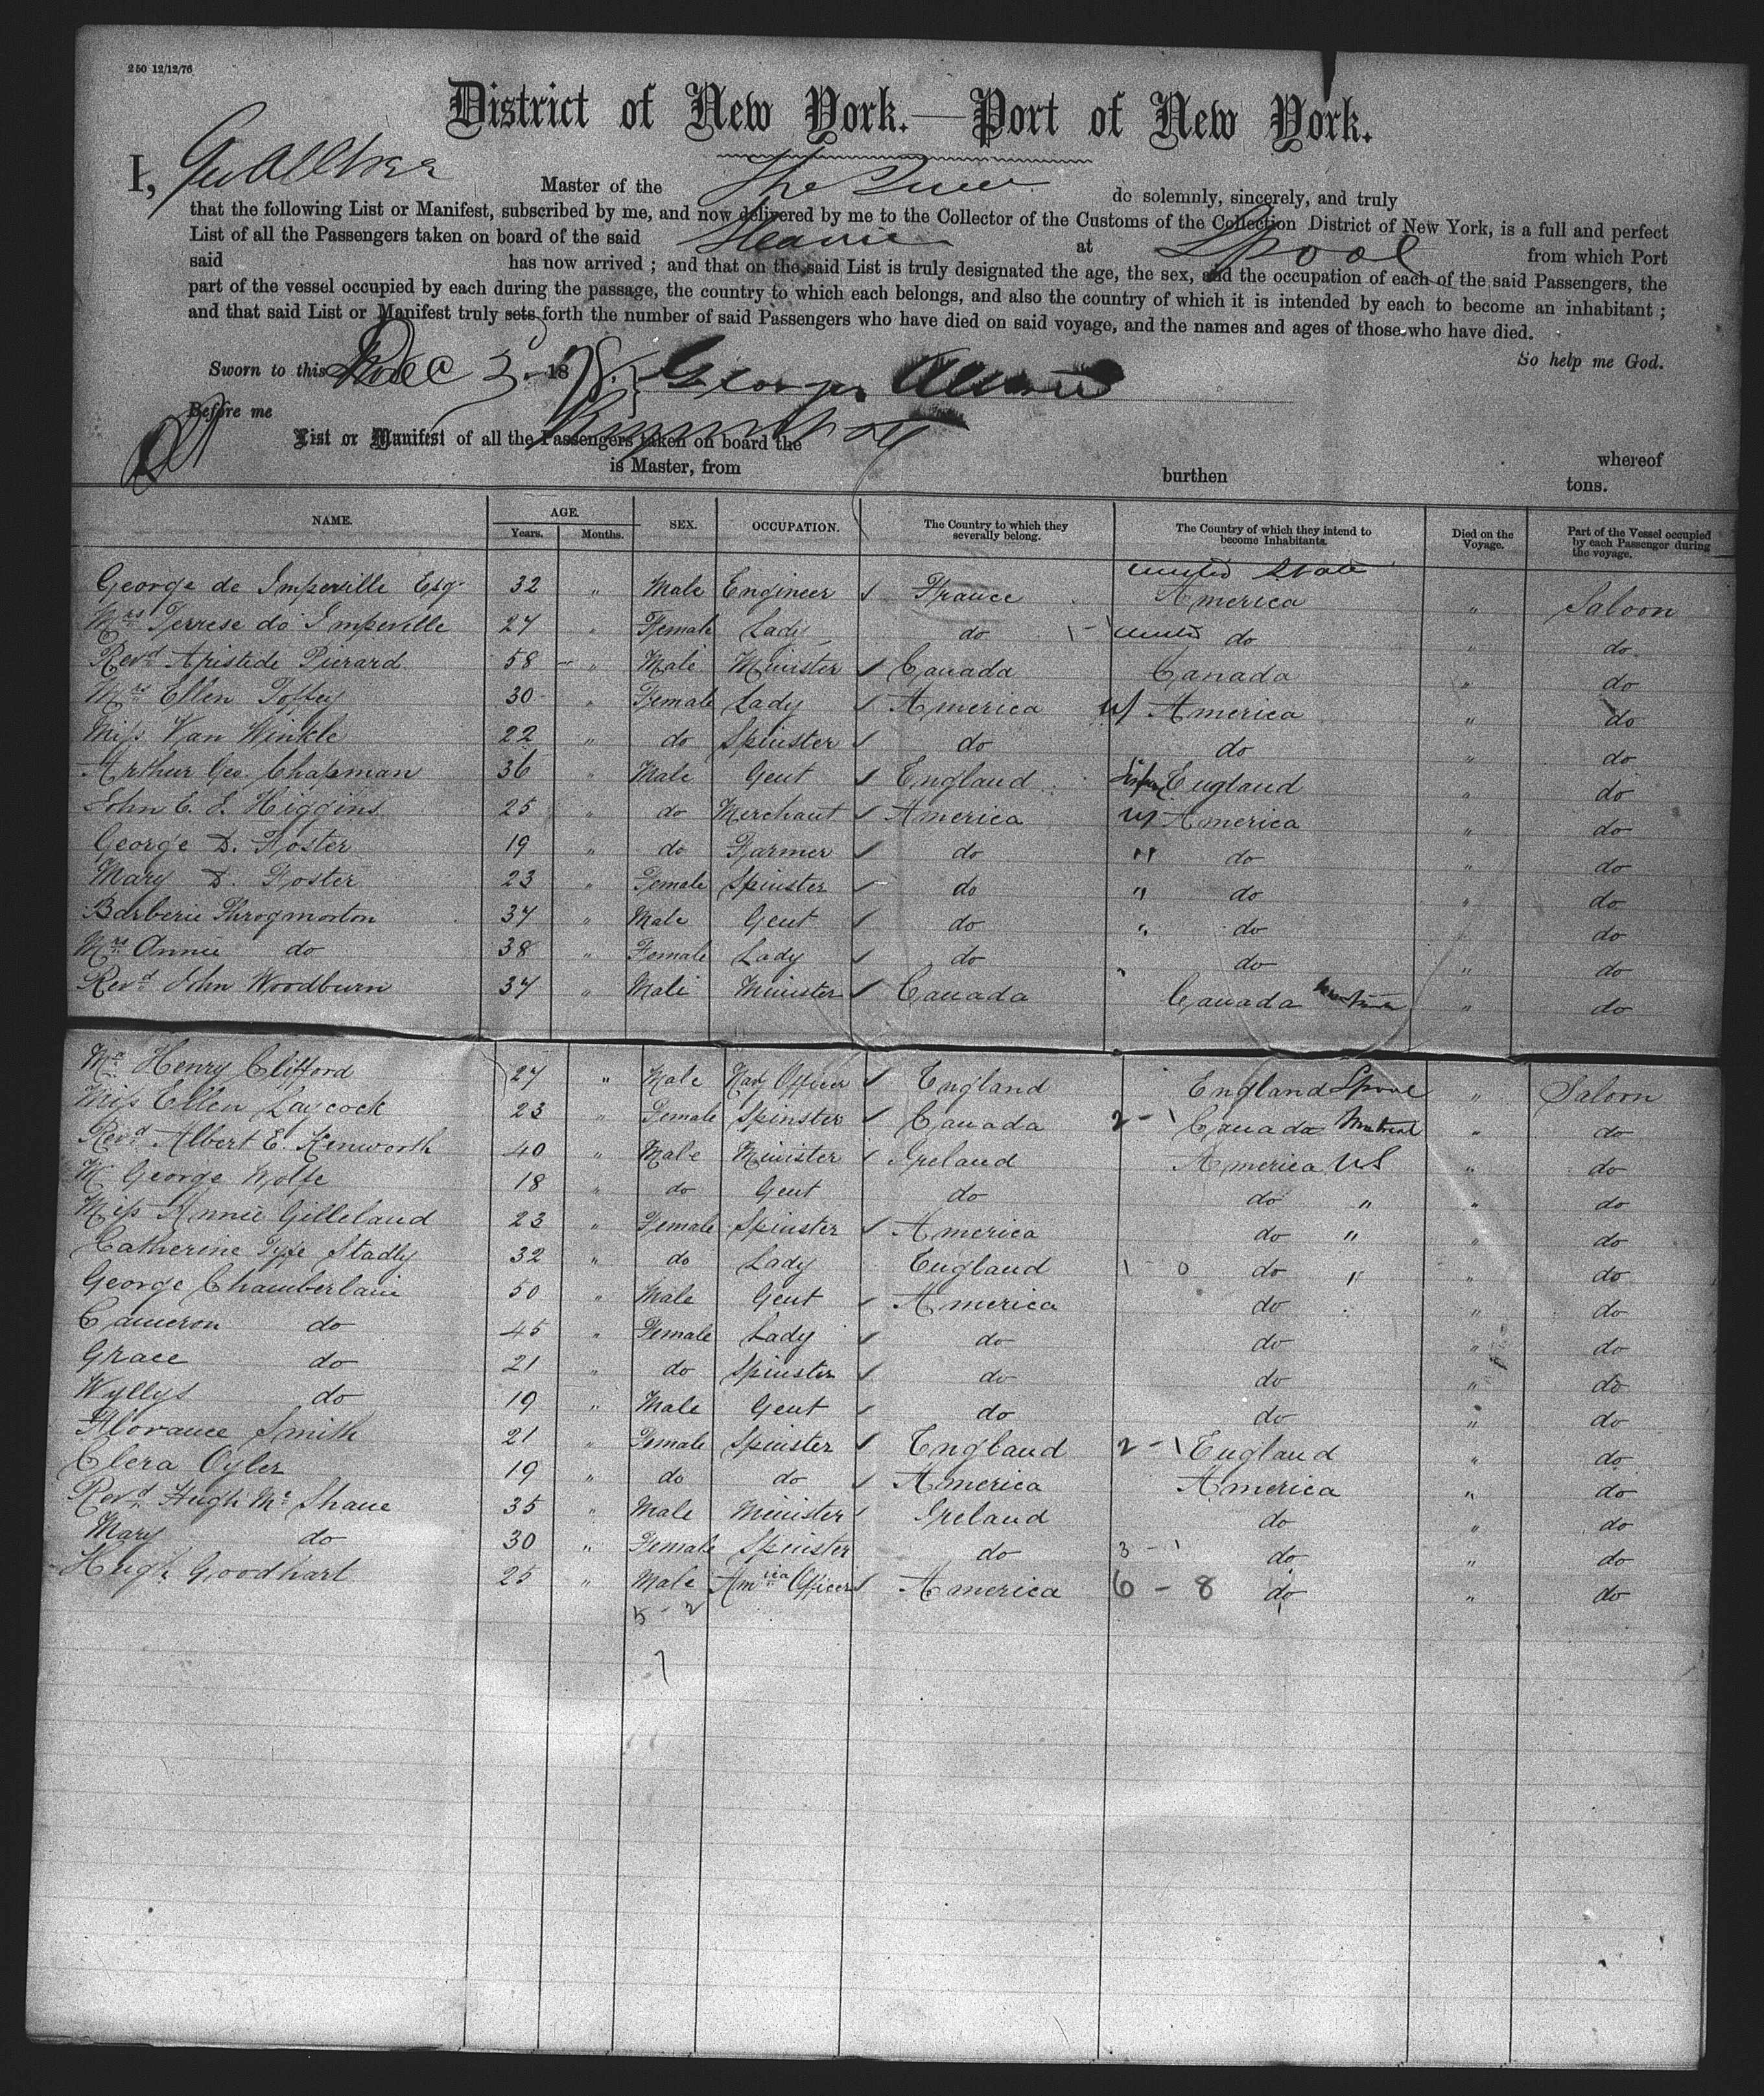 250 12/12/76
District of New York.—Port of New York.
I, Master of the The Queen do solemnly, sincerely, and truly
that the following List or Manifest, subscribed by me, and now delivered by me to the Collector of the Customs of the Collection District of New York, is a full and perfect
List of all the Passengers taken on board of the said at Lpool from which Port
said has now arrived ; and that on the said List is truly designated the age, the sex, and the occupation of each of the said Passengers, the
part of the vessel occupied by each during the passage, the country to which each belongs, and also the country of which it is intended by each to become an inhabitant ;
and that said List or Manifest truly sets forth the number of said Passengers who have died on said voyage, and the names and ages of those who have died.
So help me God.
Sworn to this Dec 3 1878. George
Before me
List or Manifest of all the Passengers taken on board the whereof
is Master, from burthen tons.
NAME. AGE. Years. Months. SEX. OCCUPATION. The Country to which they severally belong. The Country of which they intend to become Inhabitants. Died on the Voyage. Part of the Vessel occupied by each Passenger during the voyage.
United State
George de Imperville Esqr 32 " Male Engineer France America " Saloon
Mrs Terrese do Imperville 27 " Female Lady do United do " do
Revd Aristide Pierard 58 " Male Minister Canada Canada " do
Mrs Ellen Toffey 30 " Female Lady America America " do
Miss Van Winkle 22 " do Spinster do do " do
Arthur Geo. Chapman 36 " Male Gent England England " do
John E. S. Higgins 25 " do Merchant America America " do
George D. Foster 19 " do Farmer do " do " do
Mary D. Foster 23 " Female Spinster do " do " do
Barberie Throgmorton 37 " Male Gent do " do " do
Mrs Annie do 38 " Female Lady do do " do
Revd John Woodburn 37 " Male Minister Canada Canada " do
Mr Henry Clifford 27 " Male Navy Officer England England Lpool " Saloon
Miss Ellen Laycock 23 " Female Spinster Canada 2 - 1 Canada Montreal " do
Revd Albert E. Kenworth 40 " Male Minister Ireland America US " do
M George Wolfe 18 " do Gent do do " " do
Miss Annie Gilleland 23 " Female Spinster America do " " do
Catherine Tyfe Stadly 32 " do Lady England 1 - 0 do " " do
George Chamberlain 50 " Male Gent America do " do
Cameron do 45 " Female Lady do do " do
Grace do 21 " do Spinster do do " do
Wyllys do 19 " Male Gent do do " do
Florance Smith 21 " Female Spinster England 2 - 1 England " do
Clera Oyler 19 " do do America America " do
Revd Hugh Mc Shane 35 " Male Minister Ireland do " do
Mary do 30 " Female Spinster do 3 - 1 do " do
Hugh Goodhart 25 " Male Officer America 6 - 8 do " do
5 - 2
7